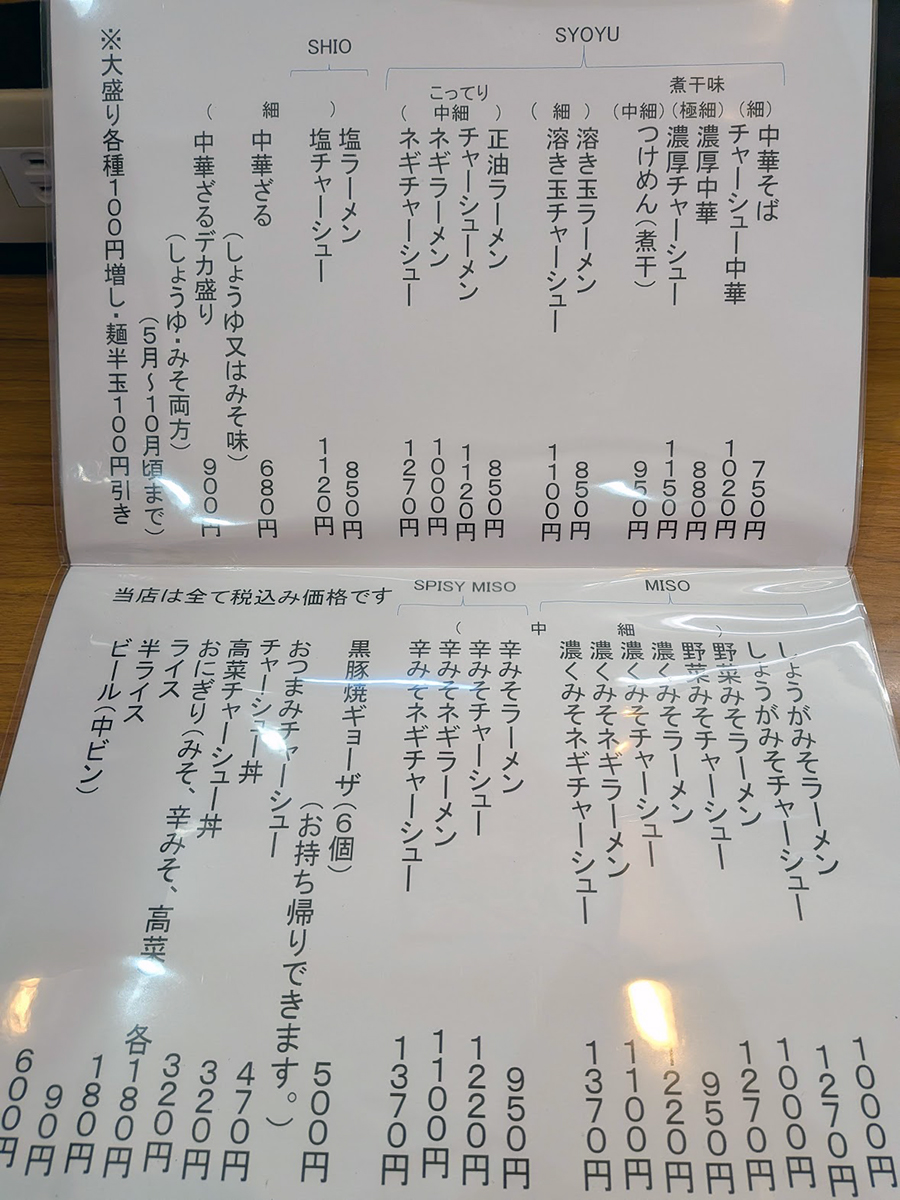 SYOYU
煮干味
(細)
中華そば 750円
チャーシュー中華 1020円
(極細)
濃厚中華 880円
濃厚チャーシュー 1150円
(中細)
つけめん(煮干) 950円
(細)
溶き玉ラーメン 850円
溶き玉チャーシュー 1100円
こってり
(中細)
正油ラーメン 850円
チャーシューメン 1120円
ネギラーメン 1000円
ネギチャーシュー 1270円
SHIO
(細)
塩ラーメン 850円
塩チャーシュー 1120円
中華ざる 680円
(しょうゆ又はみそ味)
中華ざるデカ盛り 900円
(しょうゆ・みそ両方)
(5月~10月頃まで)
※大盛り各種100円増し・麺半玉100円引き
MISO
(中細)
しょうがみそラーメン 1000円
しょうがみそチャーシュー 1270円
野菜みそラーメン 1000円
野菜みそチャーシュー 1270円
濃くみそラーメン 950円
濃くみそチャーシュー 1220円
濃くみそネギラーメン 1100円
濃くみそネギチャーシュー 1370円
SPISY MISO
辛みそラーメン 950円
辛みそチャーシュー 1220円
辛みそネギラーメン 1100円
辛みそネギチャーシュー 1370円
当店は全て税込み価格です
黒豚焼ギョーザ(6個) 500円
(お持ち帰りできます。)
おつまみチャーシュー 470円
チャーシュー丼 320円
高菜チャーシュー丼 320円
おにぎり(みそ、辛みそ、高菜) 各180円
ライス 180円
半ライス 90円
ビール(中ビン) 600円